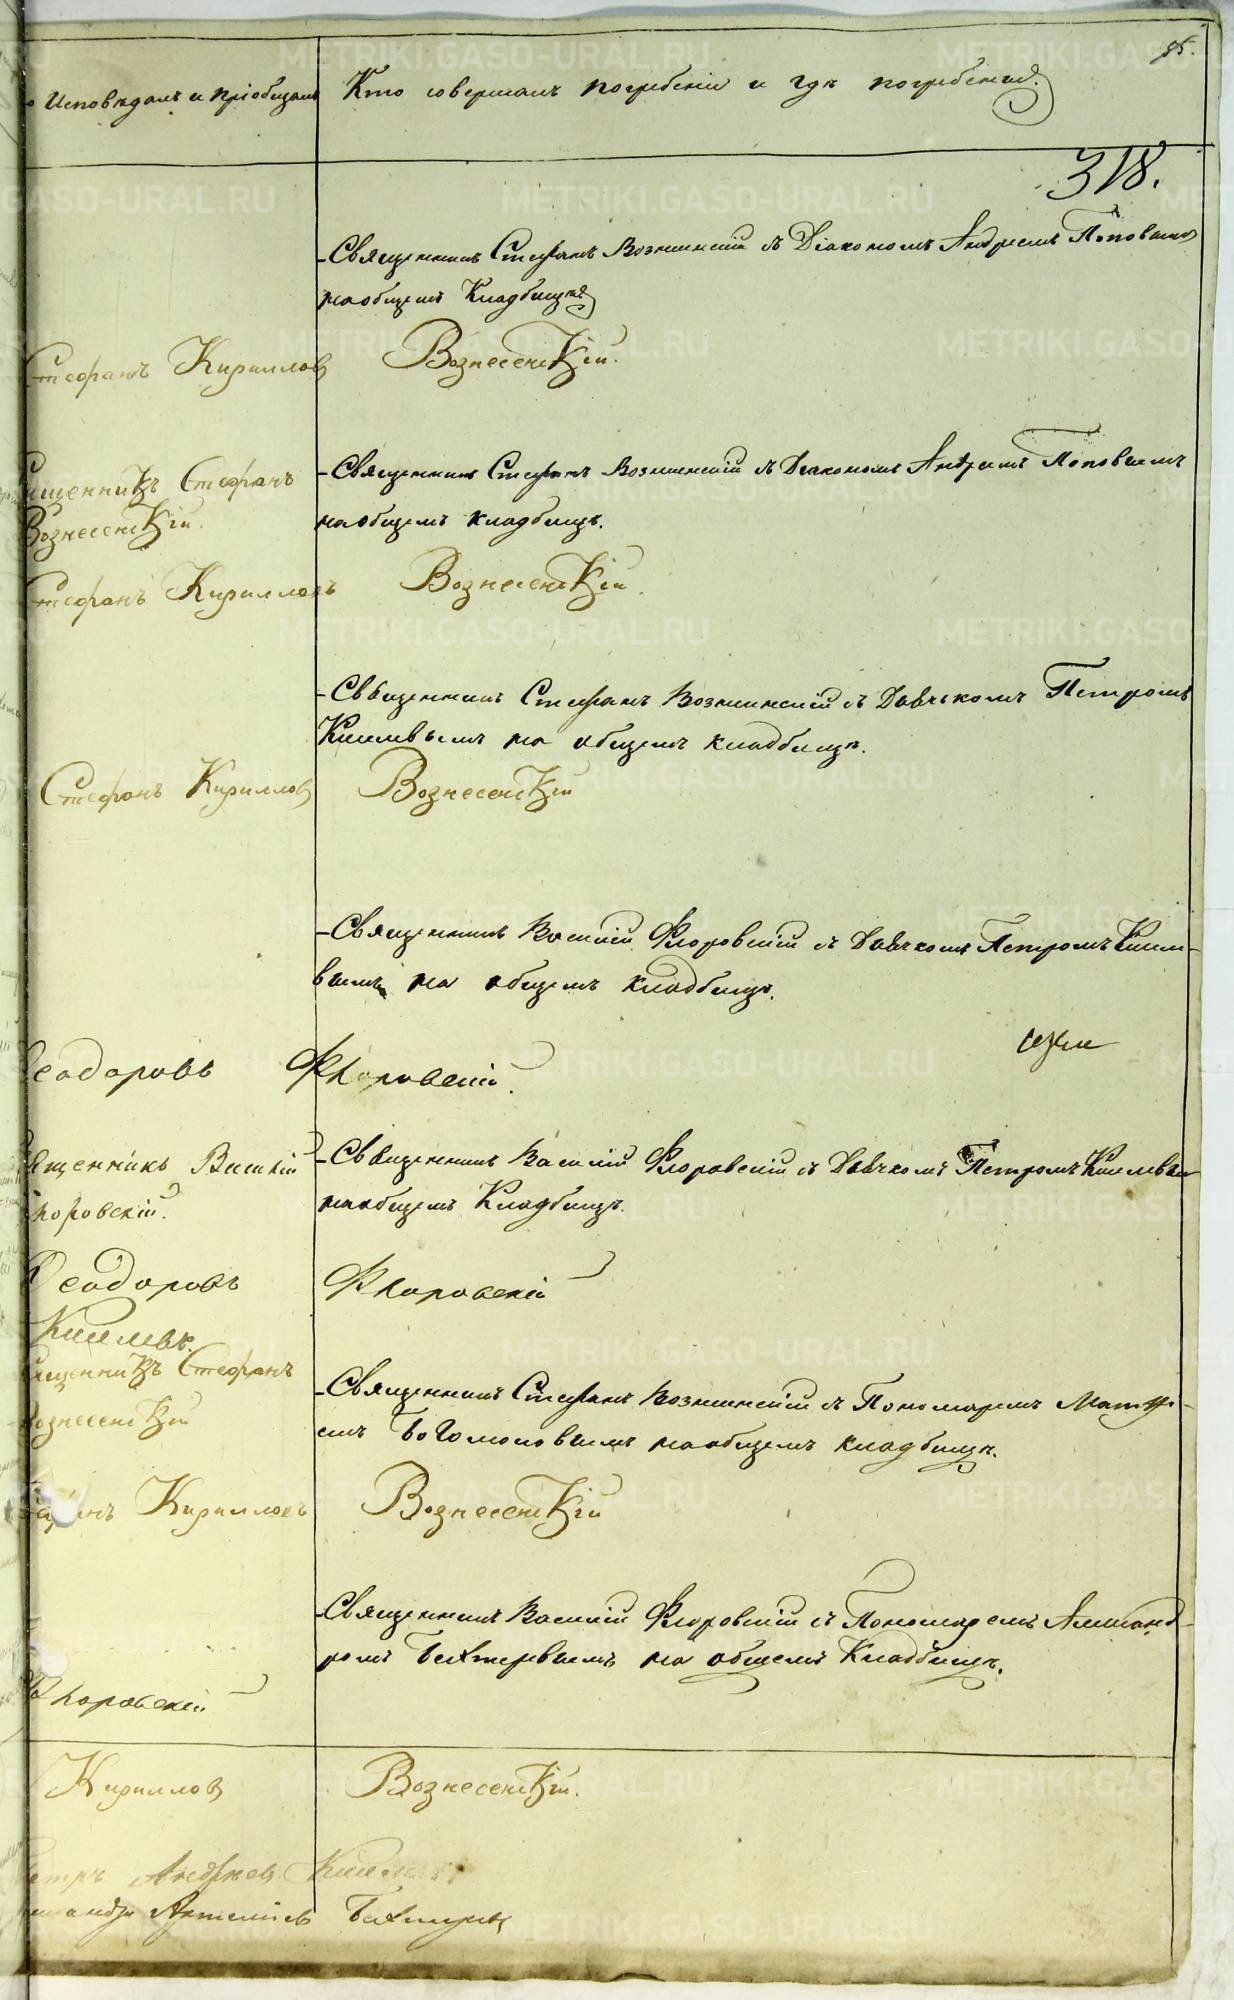 95.
Исповѣдалъ и пріобщалъ
Кто совершалъ погребеніе и гдѣ погребены
318.
Священникъ Стефанъ Вознесенскій съ Діакономъ Андреемъ Поповымъ
на общемъ Кладбищѣ
Стефанъ Кирилловъ Вознесенскій.
Священникъ Стефанъ
Вознесенскій.
Священникъ Стефанъ Вознесенскій съ Діакономъ Андреемъ Поповымъ
на общемъ кладбищѣ.
Стефанъ Кирилловъ Вознесенскій.
Священникъ Стефанъ Вознесенскій съ Дьячкомъ Петромъ
Киселевымъ на общемъ кладбищѣ.
Стефанъ Кирилловъ Вознесенскій
Священникъ Василій Флоровскій съ Дьячкомъ Петромъ Кисел-
вымъ на общемъ кладбищѣ.
Феодоровъ Флоровскій.
Священникъ Василій
Флоровскій.
Священникъ Василій Флоровскій съ Дьячкомъ Петромъ Киселевым
на общемъ Кладбищѣ.
Феодоровъ Флоровскій
Киселевъ.
Священникъ Стефанъ
Вознесенскій
Священникъ Стефанъ Вознесенскій съ Пономаремъ Матѳ-
емъ Богомоловымъ на общемъ кладбищѣ.
Стефанъ Кирилловъ Вознесенскій
Священникъ Василій Флоровскій съ Пономаремъ Александ-
ромъ Бехтеревымъ на общемъ Кладбищѣ.
Флоровскій
Кирилловъ Вознесенскій.
Петръ Андреев Киселевъ
Александръ Артеміевъ Бехтеревъ
METRIKI.GASO-URAL.RU